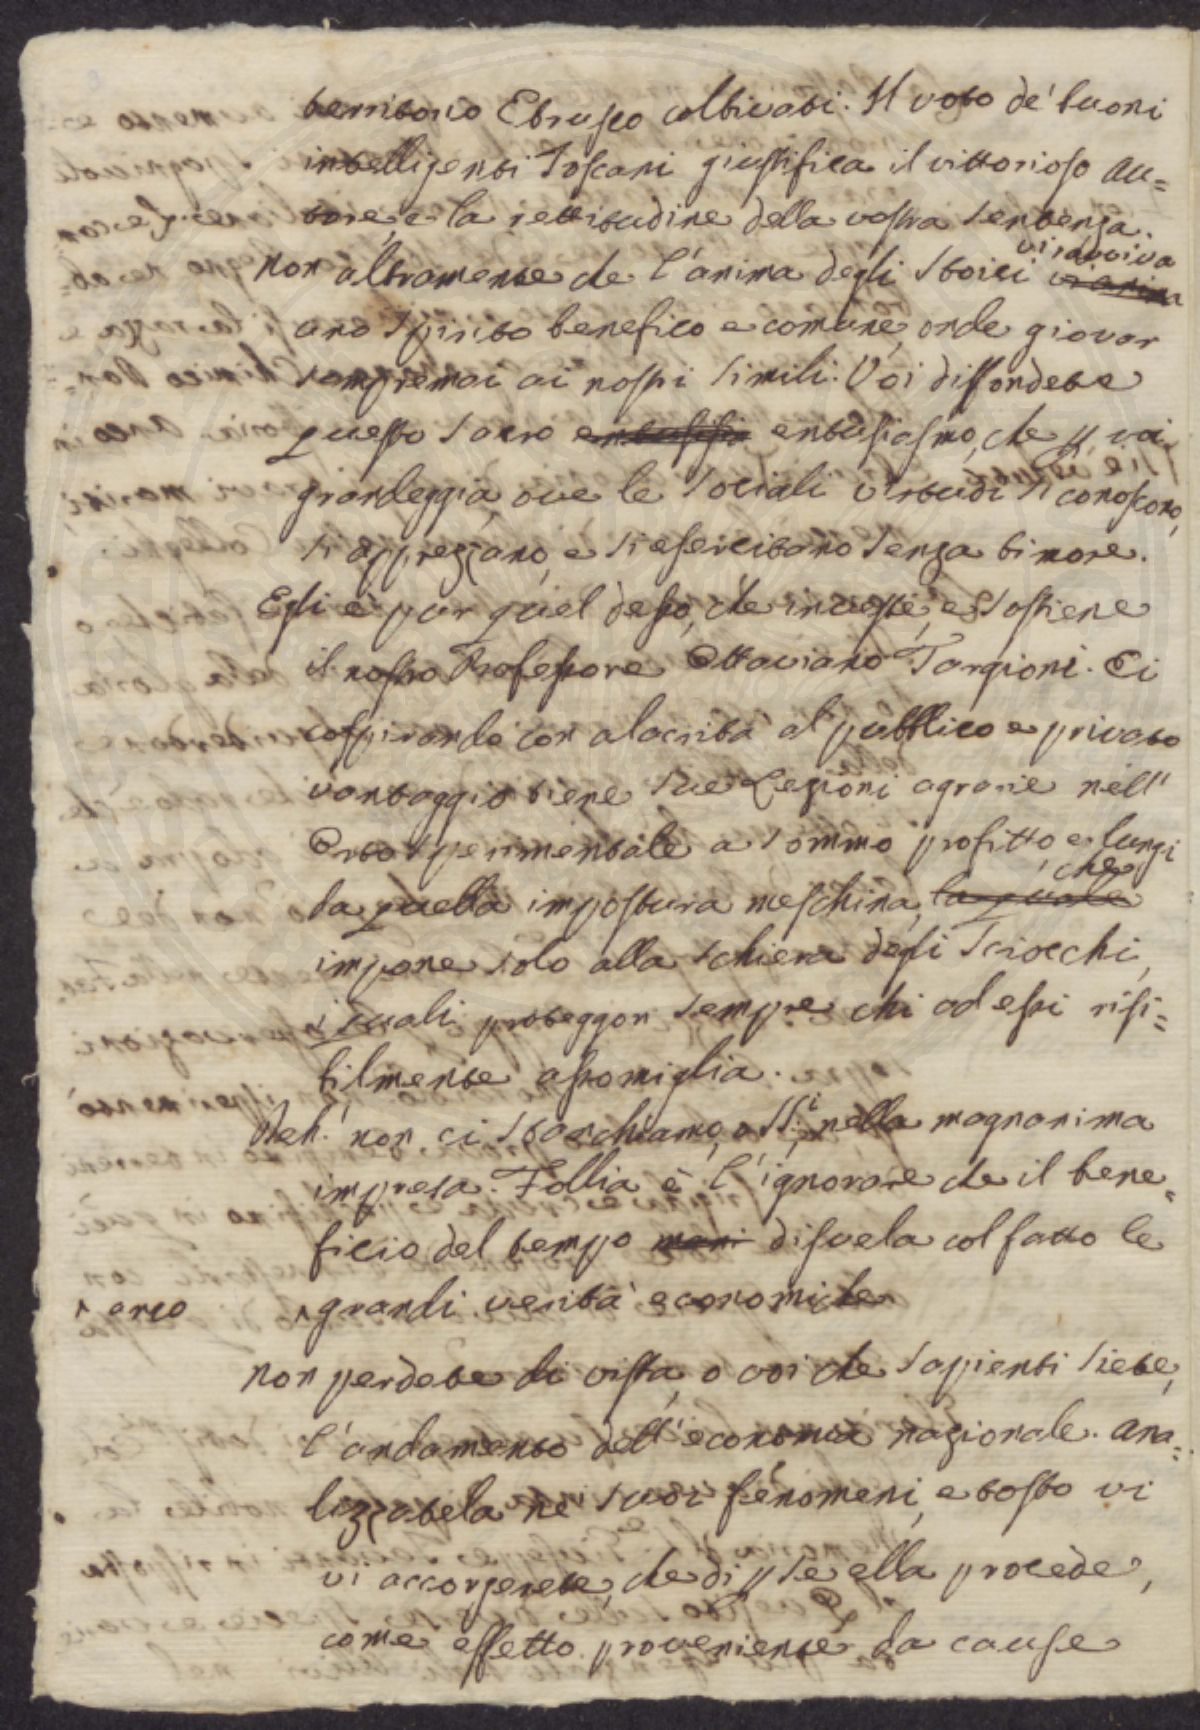 territorio Etrusco coltivati. Il voto de' buoni
intelligenti Toscani giustifica il vittorioso Au=
tore, e la rettitudine della vostra sentenza.
Non altramente che l'anima degli Stoici vi ravviva
uno spirito benefico e comune, onde giovar
sempremai ai nostri simili. Voi diffondete
questo sacro entusiasmo, che tra voi
grandeggia, ove le sociali virtudi si conoscono,
si apprezzano, e si esercitano senza timore.
Egli è pur quel desso, che investe, e sostiene
il nostro Professore Ottaviano Targioni. Ei
cospirando con alacrità al pubblico e privato
vantaggio tiene sue Lezioni agrarie nell'
Orto sperimentale a sommo profitto, e lungi
da quella impostura meschina, la quale che
impone solo alla schiera degli Sciocchi,
i quali proteggon sempre chi ad essi risi=
bilmente assomiglia.
Deh! non ci stanchiamo, o SS.i, nella magnanima
impresa. Follia è l'ignorare che il bene=
ficio del tempo disvela col fatto le
^ arco ^ grandi verità economiche
Non perdete di vista, o voi che sapienti siete,
l'andamento dell'economia nazionale. Ana=
lizzatela ne' suoi fenomeni, e tosto vi
vi accorgerete, che di per se ella procede,
come effetto proveniente da cause